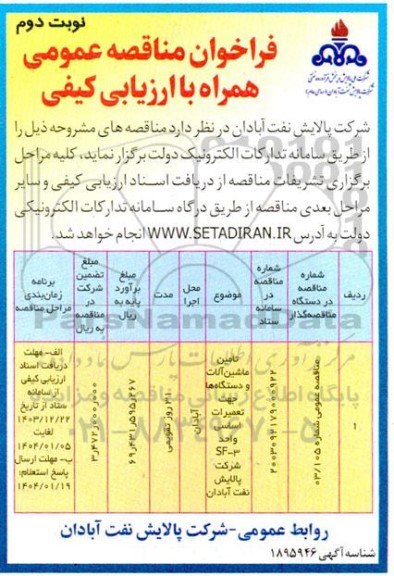 نوبت دوم
فراخوان مناقصه عمومی
همراه با ارزیابی کیفی
شرکت پالایش نفت آبادان در نظر دارد مناقصه های مشروحه ذیل را
از طریق سامانه تدارکات الکترونیک دولت برگزار نماید، کلیه مراحل
برگزاری تشریفات مناقصه از دریافت اسناد ارزیابی کیفی و سایر
مراحل بعدی مناقصه از طریق درگاه سامانه تدارکات الکترونیکی
دولت به آدرس WWW.SETADIRAN.IR انجام خواهد شد.
ردیف
شماره
مناقصه
در دستگاه
مناقصه‌گذار
شماره
مناقصه
در
سامانه
ستاد
موضوع
محل
اجرا
مدت
مبلغ
برآورد
پایه به
ریال
مبلغ
تضمین
شرکت
در
مناقصه
به ریال
برنامه
زمان‌بندی
مراحل مناقصه
۱
مناقصه عمومی شماره ۰۳/۱۰۵
تامین
ماشین‌آلات
و دستگاه‌ها
جهت
تعمیرات
اساسی
واحد
SF-3
شرکت
پالایش
نفت آبادان
آبادان
روز تقویمی
الف-مهلت
دریافت اسناد
ارزیابی کیفی
از سامانه
ستاد از تاریخ
۱۴۰۳/۱۲/۲۲
لغایت
۱۴۰۴/۰۱/۰۵
ب- مهلت ارسال
پاسخ استعلام:
۱۴۰۴/۰۱/۱۹
روابط عمومی-شرکت پالایش نفت آبادان
شناسه آگهی ۱۸۹۵۹۴۶